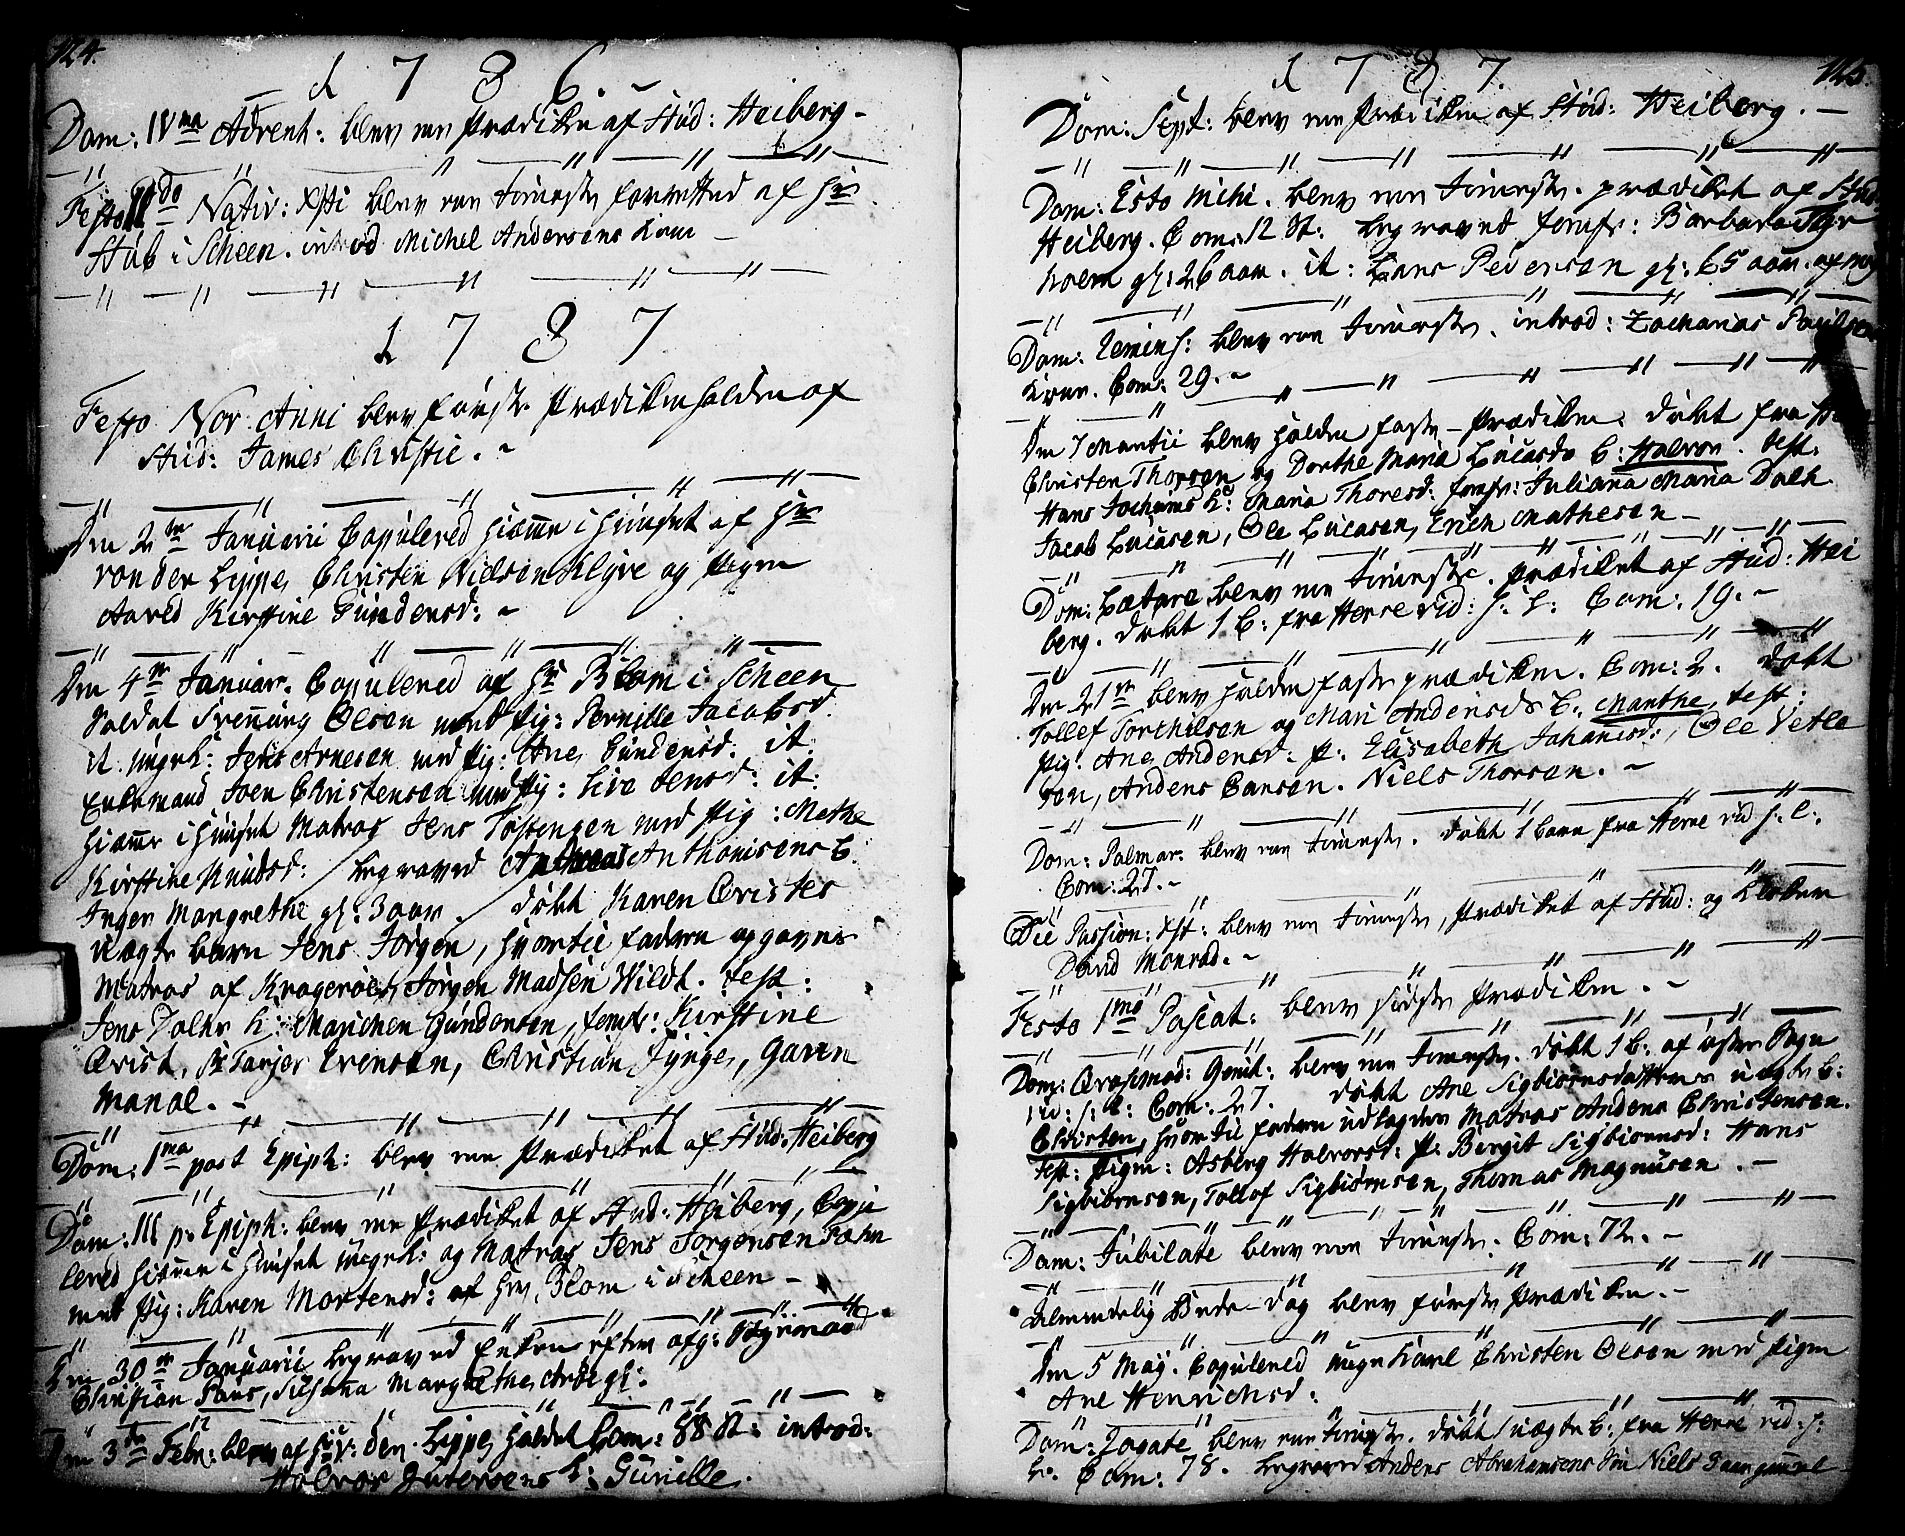 124.
1786.
Dom: IVma Advent: blev een Prædiken af Stud: Heiberg.
Festo IIdo Nativ: Xsti blev een Tieneste forrettet af Hr
Stub i Scheen. introd Michel Andersens Kone
1787
Festo Nov. Anni blev første Prædiken holden af
Stud: James Christie.
Den 2den Januarii Copulered hiemme i Huuset af Hr
von der Lippe, Christen Nielsen Klyve og Pigen
Aared Kirstine Gundersd:
Den 4de Januar. Copulered af Hr Blom i Scheen
Soldat Olsen med Pig: Pernille Jacobsd.
it. ungk: Jens Arnesen med Pig: Ane Gundersd: it:
Enkemand Joen Christensen med Pig: Live Jensd: it:
hiemme i Huuset Matros Jens Tostensen med Pig: Methe
Kirstine Knudsd: begraved Anthonisens B.
Inger Margrethe gl: 3 aar. døbt Karen Qvistes
uægte barn Jens Jørgen, hvortil faderen opgaves
Matros af Kragerøe, Jørgen Madsen Wildt. test:
Jens Dolks K: Marichen Gundersen, Jomfr: Kirstine
Qvist, Sr Tarjer Evensen, Christian Fynge, Gaven
Manoe.
Dom: 1ma post Epiph: blev een Prædiket af Stud: Heiberg
Dom: III p. Epiph: blev een Prædiket af Stud: Heiberg, Copu
lered hiemme i Huuset ungk: og Matros Jens Jørgensen
med Pig: Karen Mortensd: af Hr Blom i Scheen
Den 30te Januarii begraved Enken efter afg: Styrmand
Christian Pans, Susanna Margrethe gl:
Den 3de Febr: blev af Hr v: den Lippe holdet Com: 88 St: introd:
Halvor K: Gunille.
125.
1787.
Dom: Sept: blev een Prædiken af Stud: Heiberg.
Dom: Esto Mihi. blev een Tieneste. prædiket af Stud:
Heiberg. Com: 12 St: begravet Jomfr: Barbara
holm gl: 26 aar. it: Hans Pedersen gl: 65 aar.
Dom: Remins: blev een Tieneste. introd: Zacharias Paulsens
Kone. Com: 29.
Den 7 Martii blev holden faste-Prædiken. døbt fra
Christen Thorsen og Dorthe Maria Lucasdr B: Halvor. test:
Hans Jochums K: Maria Thoresd: Jomfr: Juliana Maria Dolk
Jacob Lucasen, Ole Lucasen, Erich Mathesen
Dom: Lætare blev een Tieneste. Prædiket af Stud: Hei
berg. døbt 1 B: fra Herre vid: h: L: Com: 19.
Den 21de blev holden faste prædiken. Com: 2. døbt
Tollef Torchilsen og Mari Andersds B: Marthe, test:
Pig: Ane Andersd: P: Elisabeth Johanisd:, Ole Vetle
sen, Anders Hansen. Niels Thorsen.
Dom: Palmar: blev een Tieneste. døbt 1 Barn fra Herre vid h: l:
Com: 27.
Die Passion: Xst: blev een Tieneste, Prædiket af Stud: og Klokker
David Monrad.
Festo 1mo Pascat: blev sidste Prædiken.
Dom: Qvasimod: Genit: blev een Tieneste. døbt 1 B: af
vid: h: l: Com: 27. døbt Ane Sigbiørnsdatters uægte B:
Christen, hvortil faderen udlagdes Matros Anders Christensen.
test: Pigen: Asberg Halvorsd: P: Birgit Sigbiørnsd: Hans
Sigbiørnsen, Tollof Sigbiørnsen, Thomas Magnusen.
Dom: Jubilate blev een Tieneste. Com: 72.
Almindelig Bede-Dag blev første Prædiken.
Den 5 Maj. Copulered unge Karl Christen Olsen med Pigen
Ane Henrichsd:
Dom: Rogate blev een Tieneste. døbt 1 uægte B: fra Herre vid: h:
L. Com: 78. begraved Anders Abrahamsens Søn Niels